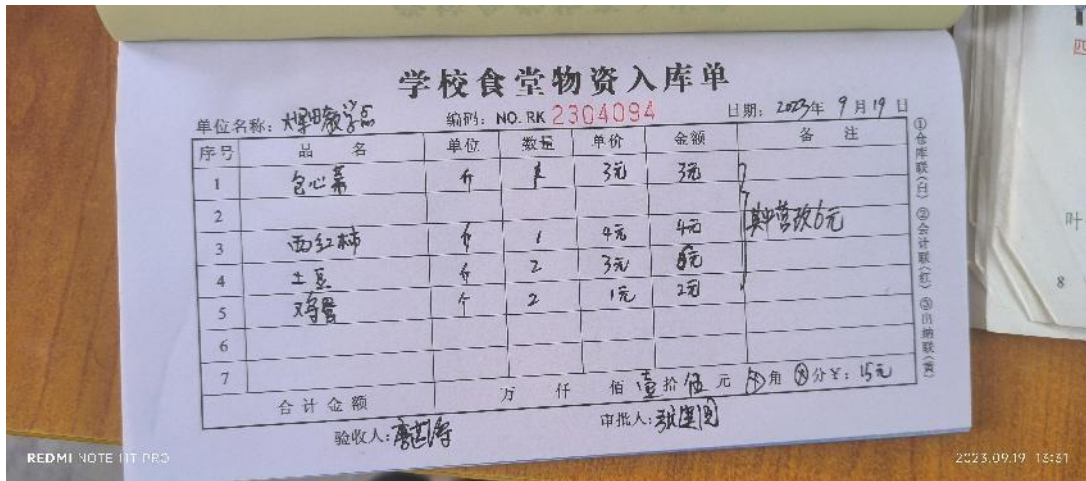 学校食堂物资入库单
单位名称: 教学点 编码: NO. RK 2304094 日期: 2023年 9月19日
序号 品 名 单位 数量 单价 金额 备 注
1 包心菜 斤 1 3元 3元
2
3 西红柿 斤 1 4元 4元 其中营改6元
4 土豆 斤 2 3元 6元
5 鸡蛋 个 2 1元 2元
6
7
合计金额 万 仟 佰 壹拾伍元 角 分 ¥: 15元
验收人: 审批人: 张建国
①仓库联(白) ②会计联(红) ③出纳联(黄)
叶
8
REDMI NOTE 11T PRO
2023.09.19 13:31